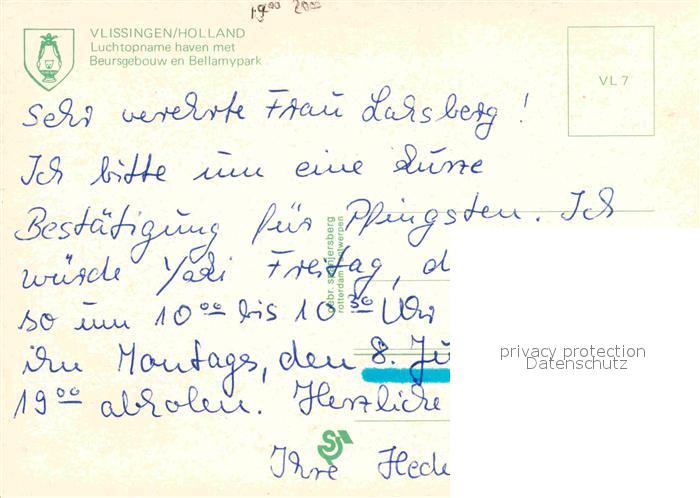 19⁰⁰ 20⁰⁰
VLISSINGEN/HOLLAND
Luchtopname haven met
Beursgebouw en Bellamypark
VL 7
Sehr verehrte Frau Lahsberg!
Ich bitte um eine kurze
Bestätigung für Pfingsten. Ich
würde Yaki Freitag, d
so um 10⁰⁰ bis 10³⁰ Uhr
ihn Montags, den 8. Ju
19⁰⁰ abholen. Herzliche
Ihre Hede
rotterdam antwerpen
privacy protection
Datenschutz